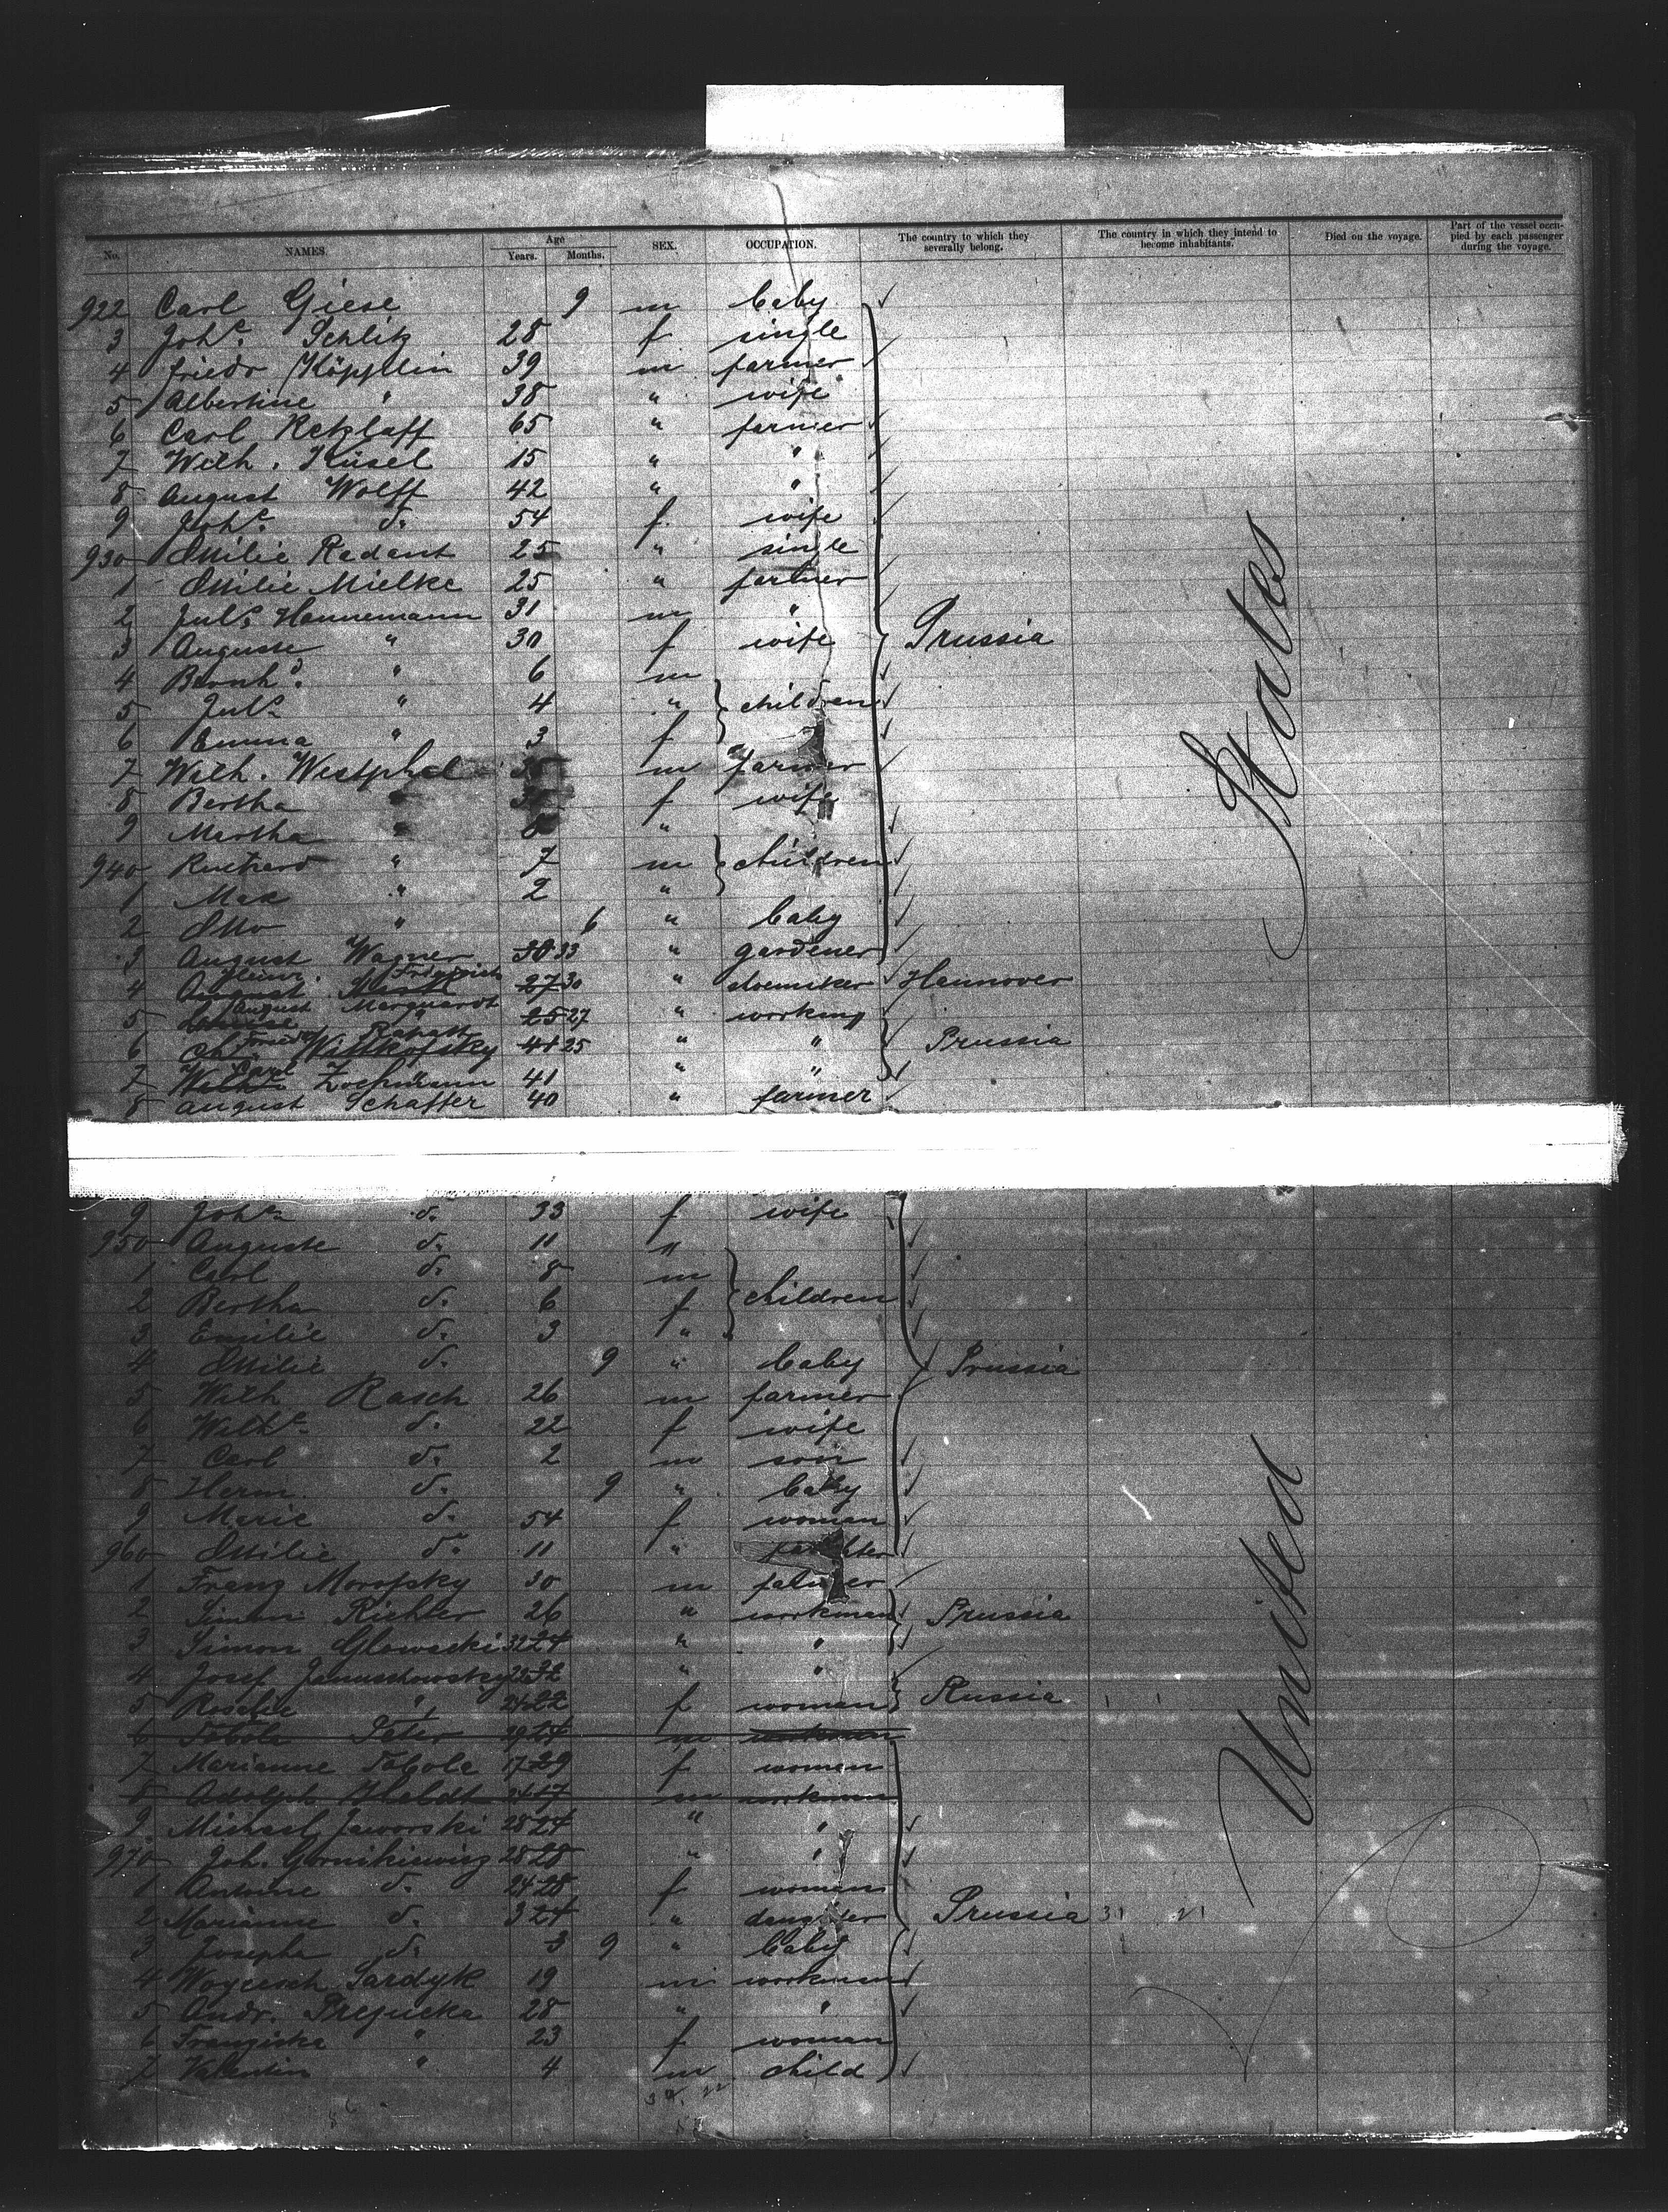 No. NAMES. Age Years. Months. SEX. OCCUPATION. The country to which they severally belong. The country in which they intend to become inhabitants. Died on the voyage. Part of the vessel occupied by each passenger during the voyage.
922 Carl Giese 9 m baby
3 Joh.e Schlitz 28 f single
4 Friedr Köpplin 39 m farmer
5 Albertine " 38 " wife
6 Carl Retzlaff 65 " farmer
7 Wilh. Küsel 15 " "
8 August Wolff 42 " "
9 Joh.e do 54 f. wife
930 Ottilie Radant 25 " single
1 Ottilie Mielke 25 " farmer
2 Juls Hannemann 31 m "
3 Auguste " 30 f wife Prussia
4 Bernhd. " 6 m
5 Juls " 4 " children
6 Emma " 3 f
7 Wilh. Westphal m farmer
8 Bertha " f wife
9 Martha " 8 "
940 " 7 m children
1 Max " 2 "
2 Otto " 6 " baby
3 August Wagner 30 33 " gardener
4 Heinr. Friedrich 27 30 " Hannover
5 August Marquardt 25 27 " working
6 Wittkofsky 41 25 " " Prussia
7 Carl Zochmann 41 " "
8 August Schaffer 40 " farmer
9 Joh.e do 33 f wife
950 Auguste do 11 "
1 Carl do 8 m
2 Bertha do 6 f children
3 Emilie do 3 "
4 Ottilie do 9 " baby Prussia
5 Wilh Rasch 26 m farmer
6 Wilhe do 22 f wife
7 Carl do 2 m son
8 Herm. do 9 " baby
9 Marie do 54 f woman
960 Ottilie do 11 "
1 Franz Morofsky 30 m farmer
2 Simon Richter 26 " workman Prussia
3 Simon Glowacki 32 24 " "
4 Josef Januschowsky 23 32 " "
5 Rosalie " 24 22 f woman Russia
6 Tobola Peter 29 24 m workman
7 Marianne Tobola 17 29 f woman
8 Adolph 24 17 m workman
9 Michael Jaworski 28 24 " "
970 Joh. Gornikiewicz 28 28 " "
1 Antonie do 24 28 f woman
2 Marianne do 3 24 " daughter Prussia
3 Josepha do 3 9 " baby
4 Woyciech Sardyk 19 m workman
5 Andr. 28 " "
6 Franziska " 23 f woman
7 Valentin " 4 m child
United States